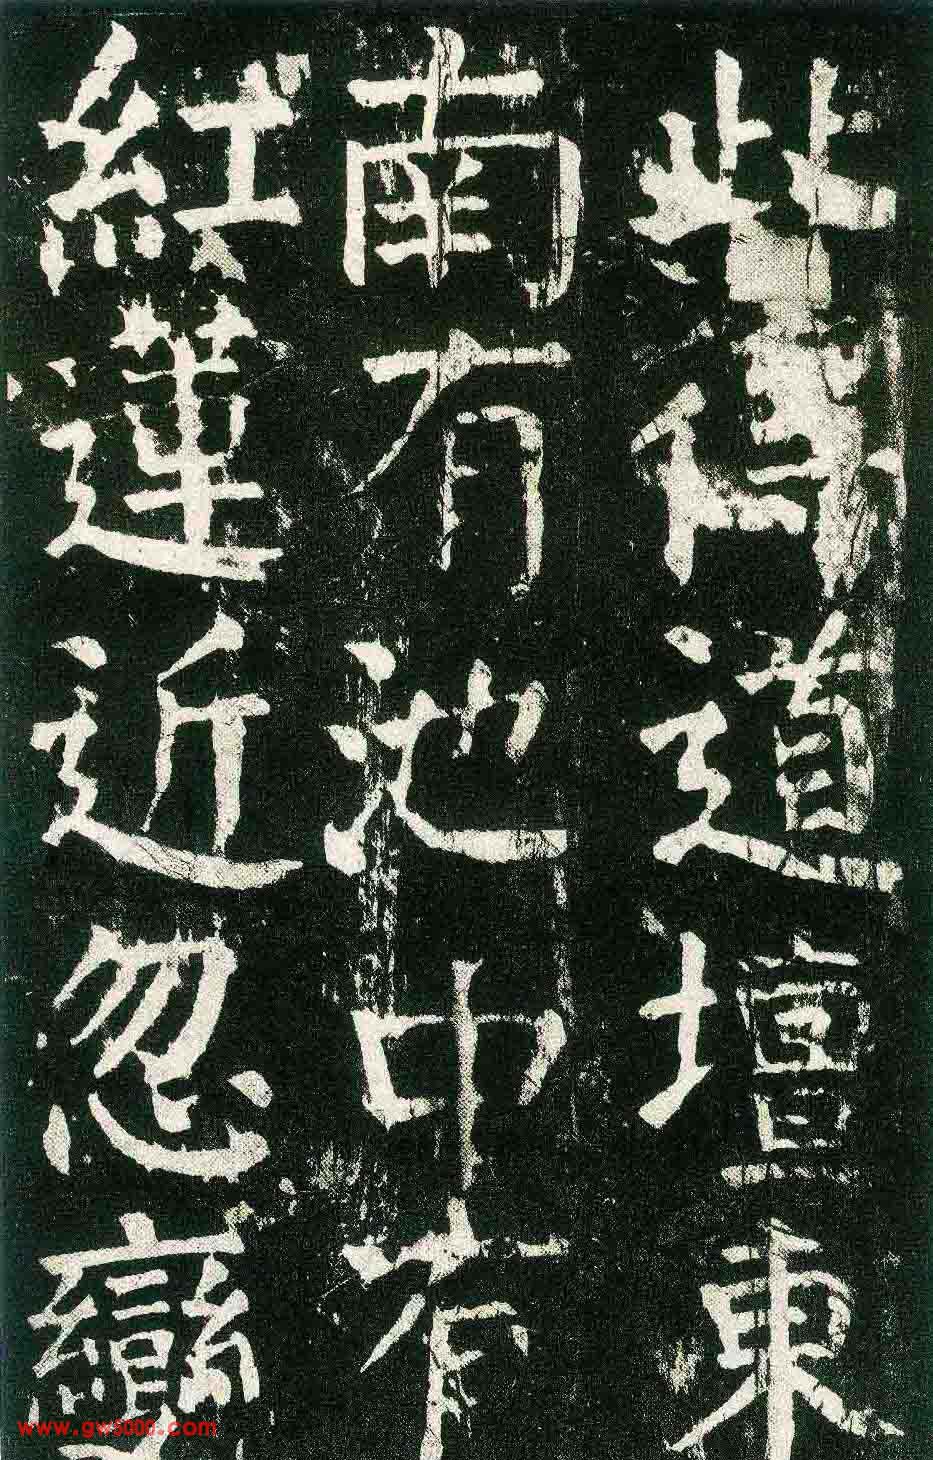 此得道壇東
南有池中有
紅蓮近忽變
www.gw5000.com